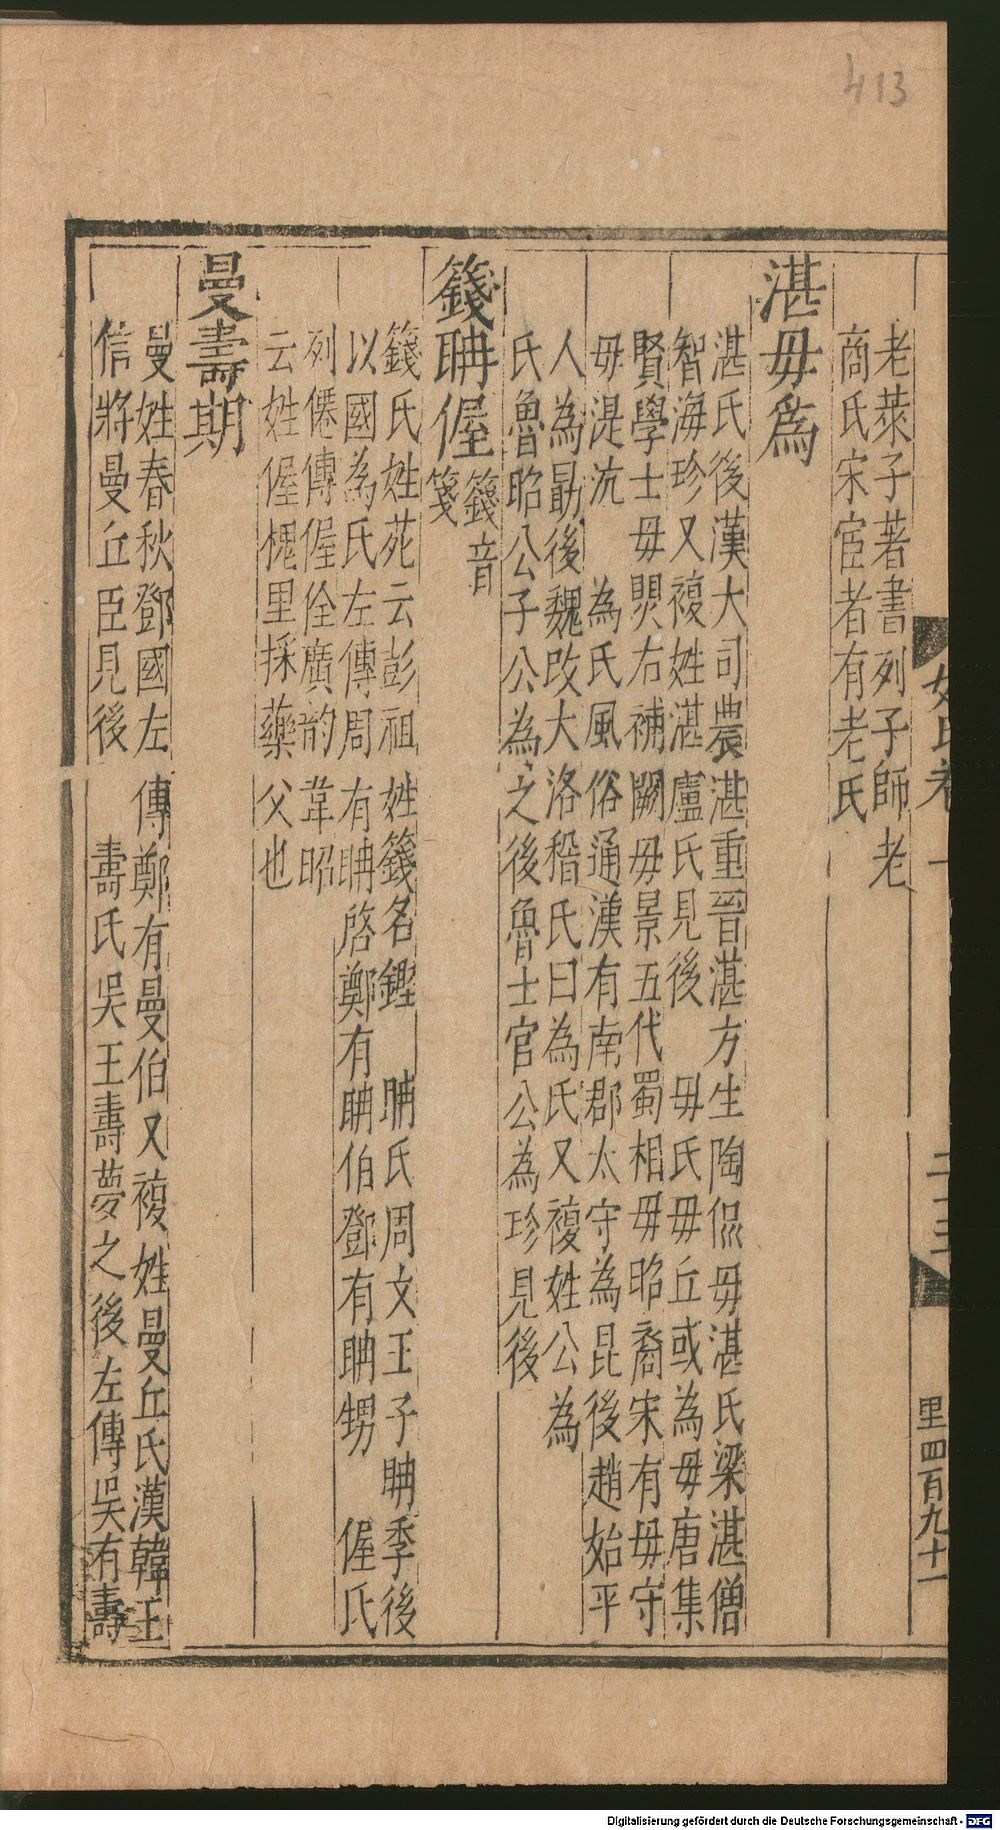 413
老萊子著書列子師老
商氏宋宦者有老氏
湛毋為
湛氏後漢大司農湛重晉湛方生陶侃毋湛氏梁湛僧
智海珍又複姓湛盧氏見後 毋氏毋丘或為毋唐集
賢學士毋煚右補闕毋景五代蜀相毋昭裔宋有毋守
毋湜沆 為氏風俗通漢有南郡太守為昆後趙始平
人為勗後魏改大洛稽氏曰為氏又複姓公為
氏魯昭公子公為之後魯士官公為珍見後
籛聃偓
籛音
箋
籛氏姓苑云彭祖姓籛名鏗 聃氏周文王子聃季後
以國為氏左傳周有聃啓鄭有聃伯鄧有聃甥 偓氏
列僊傳偓佺廣韵韋昭
云姓偓槐里採藥父也
曼壽期
曼姓春秋鄧國左傳鄭有曼伯又複姓曼丘氏漢韓王
信將曼丘臣見後 壽氏吳王壽夢之後左傳吳有壽
里四百九十一
Digitalisierung gefördert durch die Deutsche Forschungsgemeinschaft - DFG